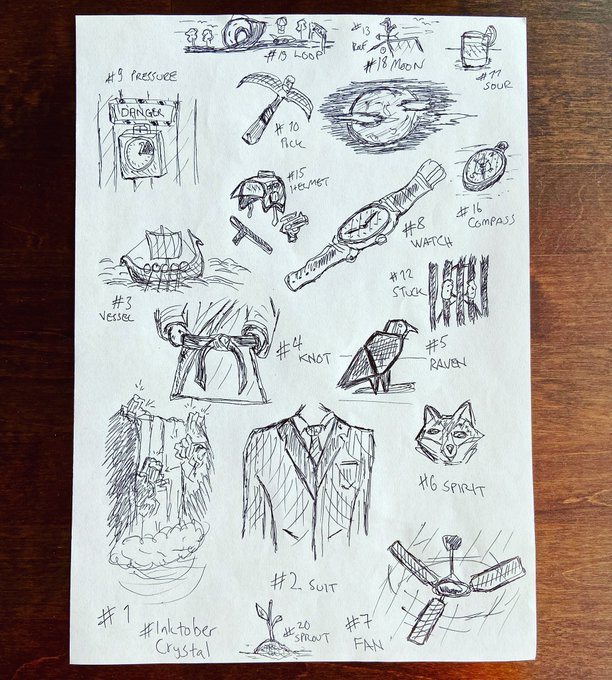 #19 LOOP
#13
ROOF
#18 MOON
#11
SOUR
#9 PRESSURE
DANGER
#10
PICK
#15
HELMET
#16
COMPASS
#8
WATCH
#12
STUCK
#3
VESSEL
#4
KNOT
#5
RAVEN
#6 SPIRIT
#2 SUIT
#1
#Inktober
Crystal
#20
SPROUT
#7
FAN